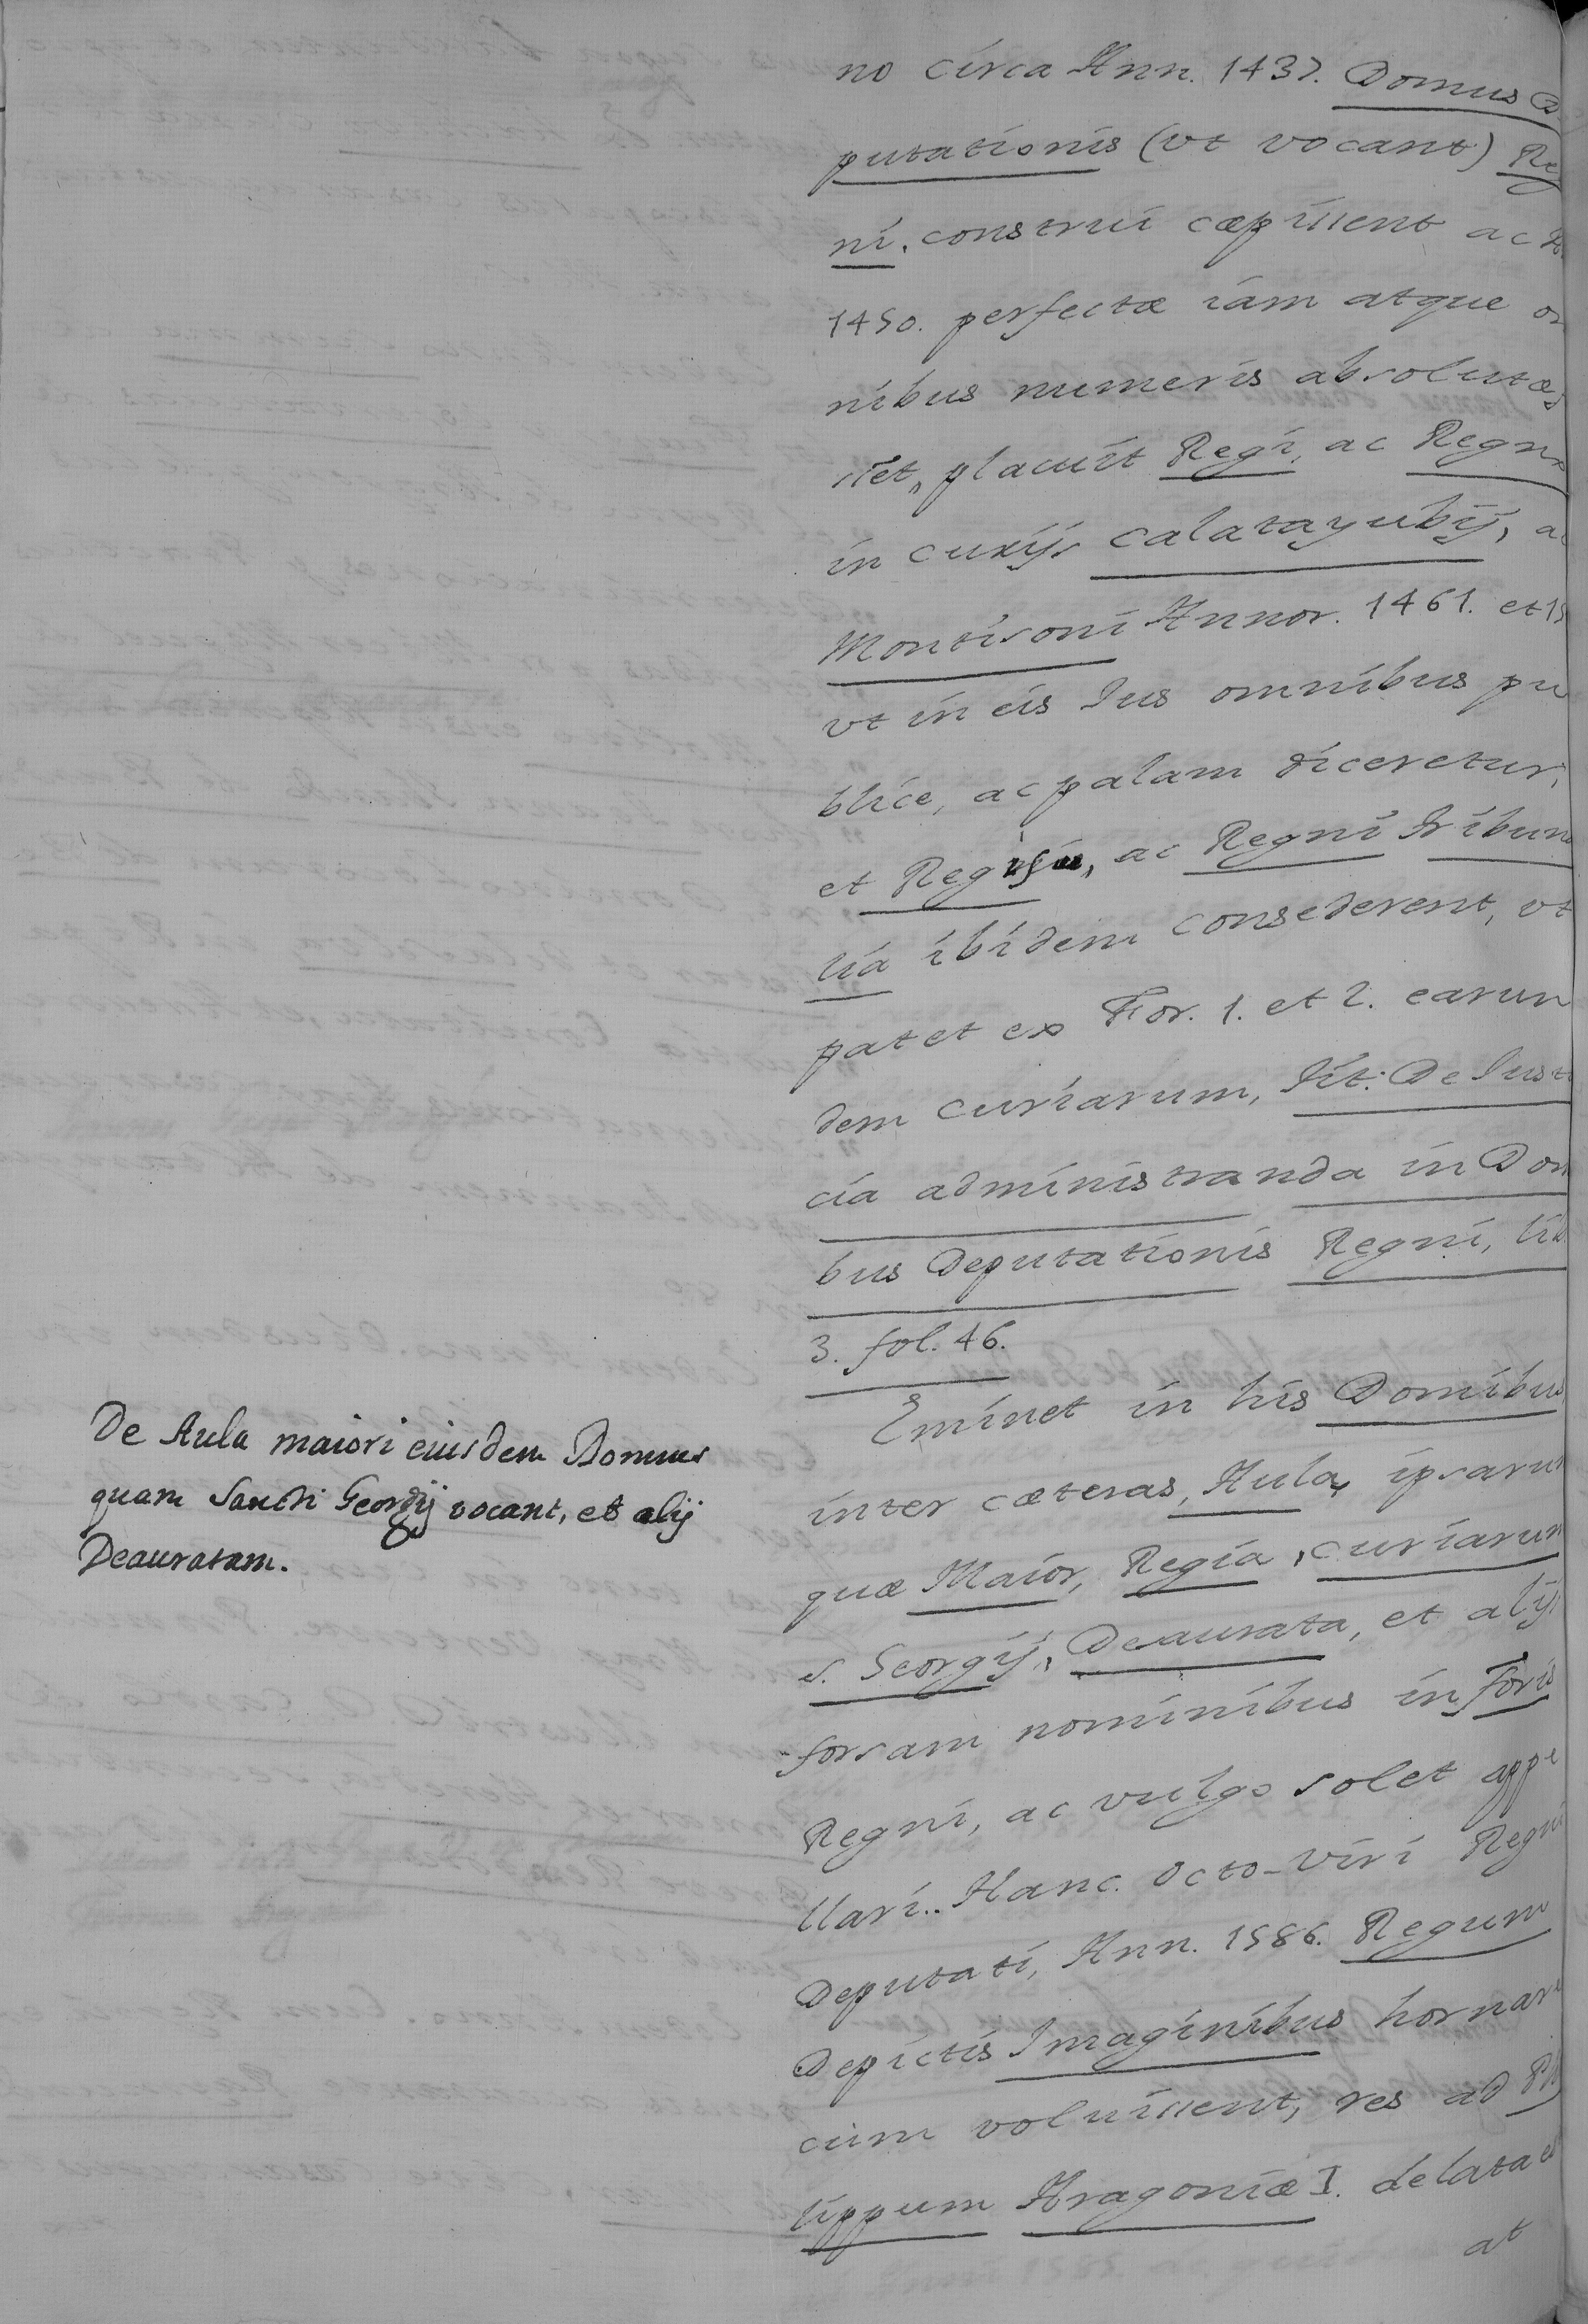 no circa Ann. 1437. Domus De
putationis (vt vocant) Reg
ni, construi cœpissent ac A.
1450. perfectæ iam atque om
nibus numeris absolutæ es
sset, placuit Regi, ac Regno
in curijs Calatayubij, ac
Montisoni Annor. 1461. et 15
vt in eis Ius omnibus pu
blice, ac palam diceretur,
et Regis, ac Regni Tribuna
lia ibidem consederent, vt
patet ex For. 1. et 2. earun
dem curiarum, Tit. De Iusti
cia administranda in Dom
bus Deputationis Regni, lib.
3. fol. 46.
Eminet in his Domibus
inter cæteras, Aula, ipsarum
quæ Maior, Regia, curiarum
S. Georgij, Deaurata, et alijs
forsam nominibus in Foris
Regni, ac vulgo solet appe
llari. Hanc Octo-viri Regni
Deputati, Ann. 1586. Regum
Depictis Imaginibus hornari
cum voluissent, res ad Phi
lippum Aragoniæ I. delata est
at
De Aula maiori eiusdem Domus
quam Sancti Georgij vocant, et alij
Deauratam.